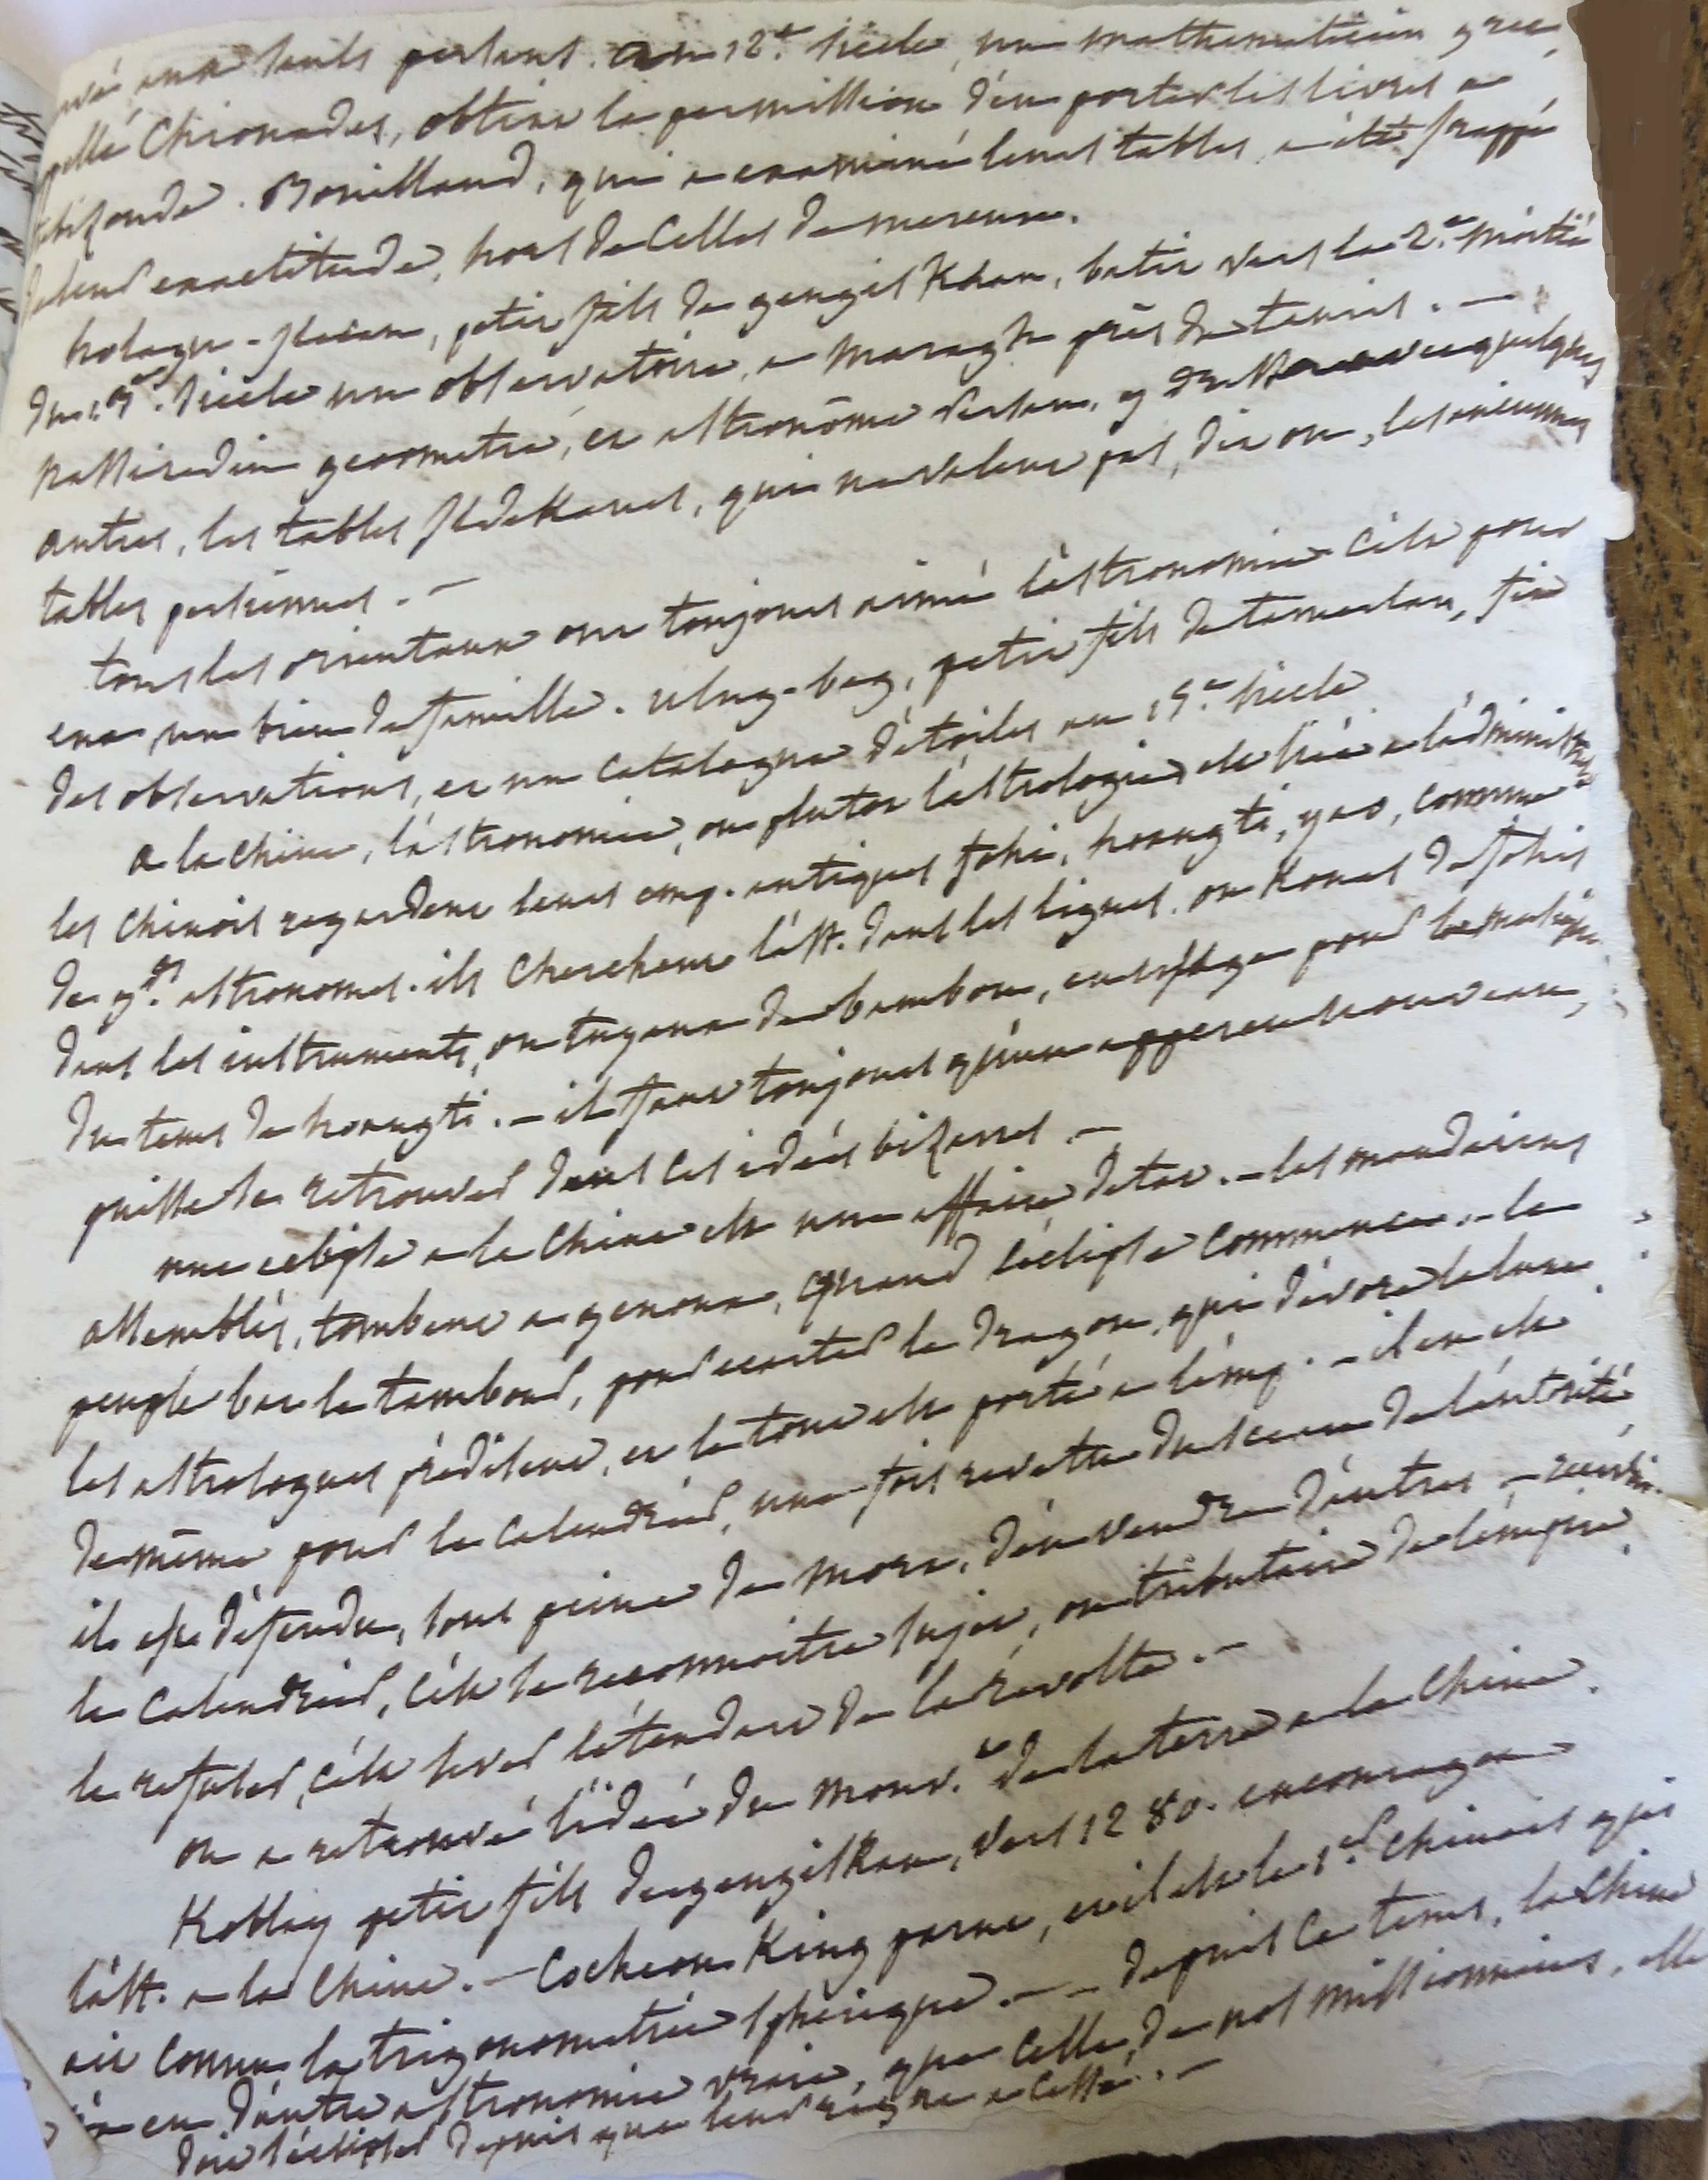 aux seuls persans. au 12e. siècle, un mathématicien grec,
appellé Chioniades, obtint la permission d'en porter les livres a
trebizonde. Bouillaud, qui a examiné leurs tables, a été frappé
de leur exactitude, hors de celles de mercure.
holagu-Ilecan, petit fils de gengis Khan, batit vers la 2e. moitié
du 13e. siecle un observatoire, a maragh près de tauris. —
Nassiredin geometre, et astronôme persan, y dressa avec quelques
autres, les tables Ildekanes, qui ne valent pas, dit on, les anciennes
tables persiennes. —
tous les orientaux ont toujours aimé l'astronomie c'est pour
eux un bien de famille. ulug-beg, petit fils de tamerlan, fit
des observations, et un catalogue d'étoiles au 15e. siecle
a la chine, l'astronomie, ou plutot l'astrologie est liée a l'administration
les chinois regardent leurs emp. antiques fohi, hoangti, yao, comme
de gds. astronomes. ils cherchent l'ast. dans les lignes, ou Kouas de fohi
dans les instruments, ou tuyaux de bambou, en usage pour la musique
du tems de hoangti. — il faut toujours qu'un apperçu nouveau,
puisse se retrouver dans ces idées bizarres. —
une eclipse a la chine est une affaire d'etat. — les mandarins
assemblés, tombent a genoux, quand l'éclipse commence. — le
peuple bat le tambour, pour ecarter le dragon, qui dévore la lune
les astrologues prédisent, et le tout est porté a l'emp. — il en est
de même pour le calendrier, une fois revetu du sceau de l'autorité
il est défendu, sous peine de mort, d'en vendre d'autres — recevoir
le calendrier, c'est se reconnoitre sujet, ou tributaire de l'empire
le refuser, c'est lever l'étendard de la révolte. —
on a retrouvé l'idée du mouv.t de la terre a la chine.
Koblay petit fils de gengiskan, vers 1280. encouragea
l'ast. a la chine. — Cocheou King parut, et il est le 1er. chinois qui
ait connu la trigonometrie spherique. — — depuis ce tems, la chine
n'a eu d'autre astronomie vraie, que celle, de nos missionnaires, elle
doit s'éclipser depuis que leur règne a cessé. —